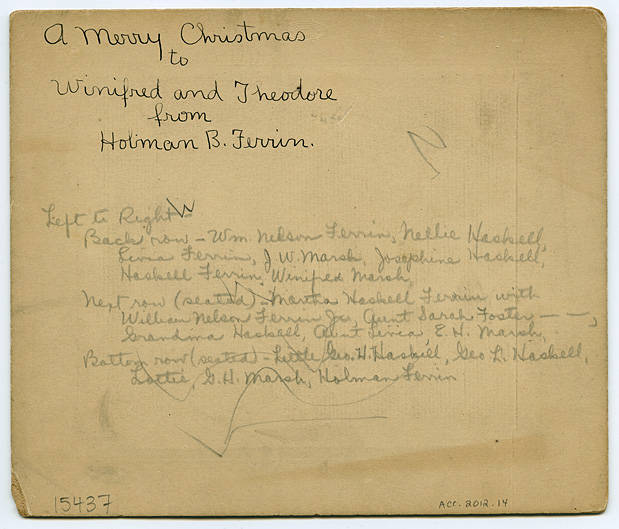 A Merry Christmas
to
Winifred and Theodore
from
Holman B. Ferrin.
Left to Right -
Back row - Wm. Nelson Ferrin, Nellie Haskell,
Livia Ferrin, J. W. Marsh, Josephine Haskell,
Haskell Ferrin, Winifred Marsh,
Next row (seated) - Martha Haskell Ferrin with
William Nelson Ferrin Jr, Aunt Sarah Foster - -,
Grandma Haskell, Aunt Livia E. H. Marsh,
Bottom row (seated) - Little Geo. H. Haskell, Geo L. Haskell,
Lottie, G. H. Marsh, Holman Ferrin
15437
Acc. 2012.14